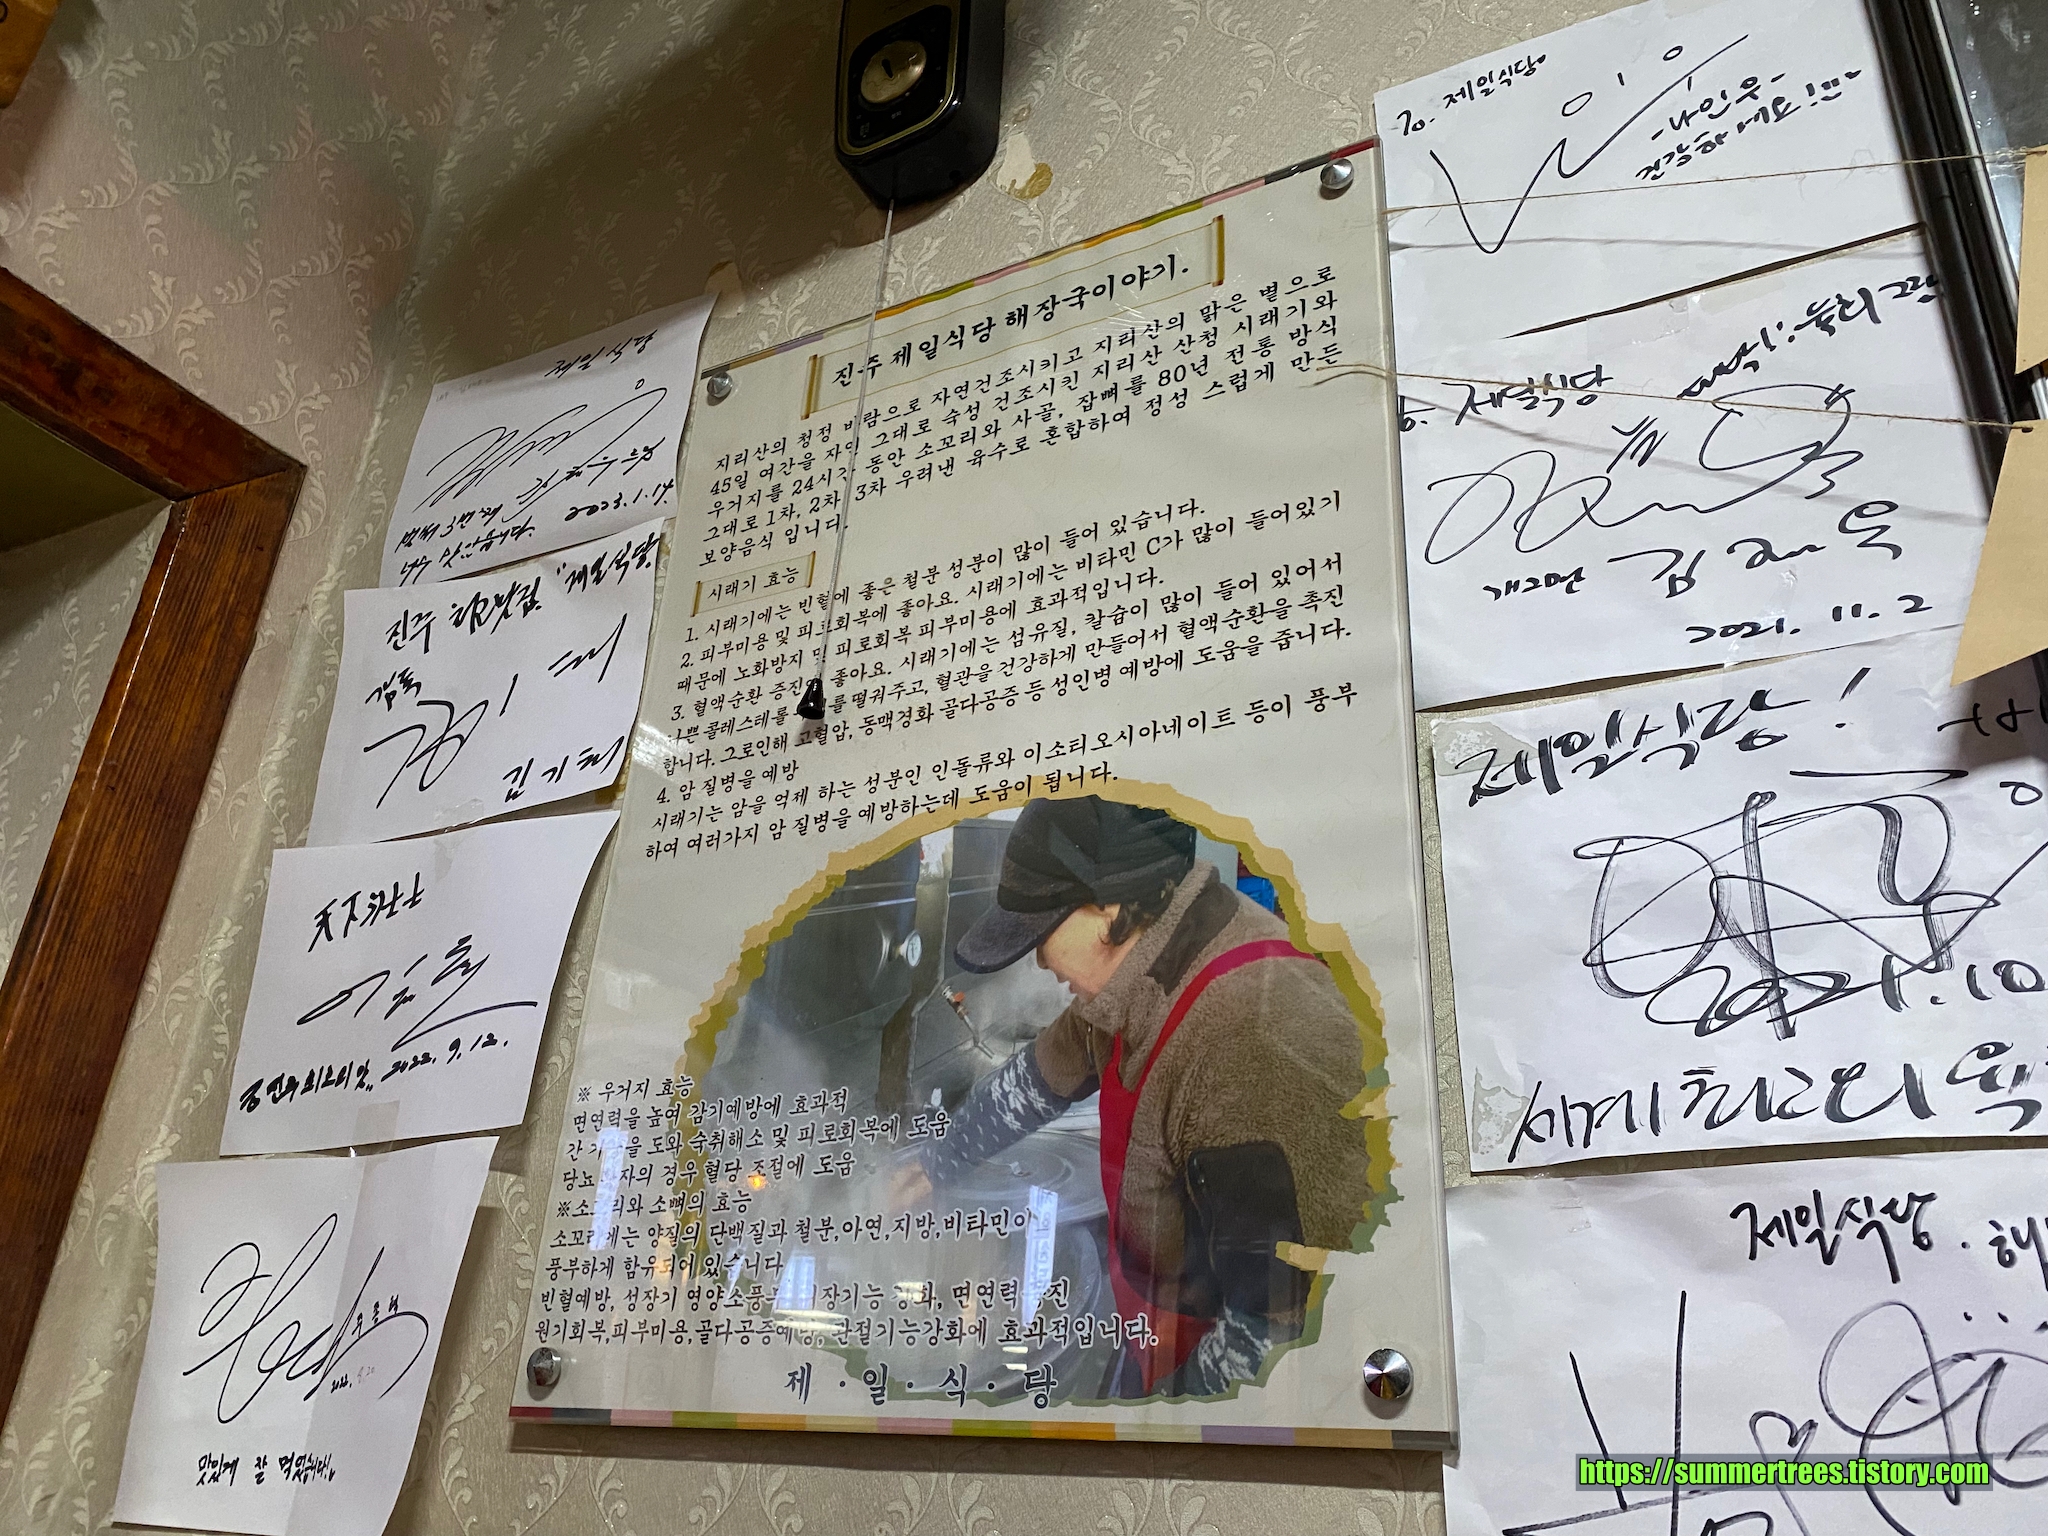 진주 제일식당 해장국이야기.
지리산의 청정 바람으로 자연건조시키고 지리산의 맑은 볕으로
45일 여간을 자연 그대로 숙성 건조시킨 지리산 산청 시래기와
우거지를 24시간 동안 소꼬리와 사골, 잡뼈를 80년 전통 방식
그대로 1차, 2차, 3차 우려낸 육수로 혼합하여 정성 스럽게 만든
보양음식 입니다.
시래기 효능
1. 시래기에는 빈혈에 좋은 철분 성분이 많이 들어 있습니다.
2. 피부미용 및 피로회복에 좋아요. 시래기에는 비타민 C가 많이 들어있기
때문에 노화방지 및 피로회복 피부미용에 효과적입니다.
3. 혈액순환 증진에 좋아요. 시래기에는 섬유질, 칼슘이 많이 들어 있어서
나쁜 콜레스테롤 를 떨궈주고, 혈관을 건강하게 만들어서 혈액순환을 촉진
합니다. 그로인해 고혈압, 동맥경화 골다공증 등 성인병 예방에 도움을 줍니다.
4. 암 질병을 예방
시래기는 암을 억제 하는 성분인 인돌류와 이소티오시아네이트 등이 풍부
하여 여러가지 암 질병을 예방하는데 도움이 됩니다.
※ 우거지 효능
면연력을 높여 감기예방에 효과적
간 을 도와 숙취해소 및 피로회복에 도움
당뇨 자의 경우 혈당 조절에 도움
※소꼬리와 소뼈의 효능
소꼬리에는 양질의 단백질과 철분,아연,지방,비타민이
풍부하게 함유되어 있습니다
빈혈예방, 성장기 영양소풍 장기능 강화, 면연력 증진
원기회복,피부미용,골다공증예방, 관절기능강화에 효과적입니다.
제·일·식·당
제일식당
벌써 3번째
너무 맛있습니다.
2023.1.14.
진주 "제일식당
감독
김기
2022. 9. 12.
맛있게 잘 먹었습니다!
To. 제일식당
-나인우-
건강하세요!!!
제일식당
개그맨 김재욱
2021. 11. 2
제일식당!
2021.10
제일식당. 해
https://summertrees.tistory.com